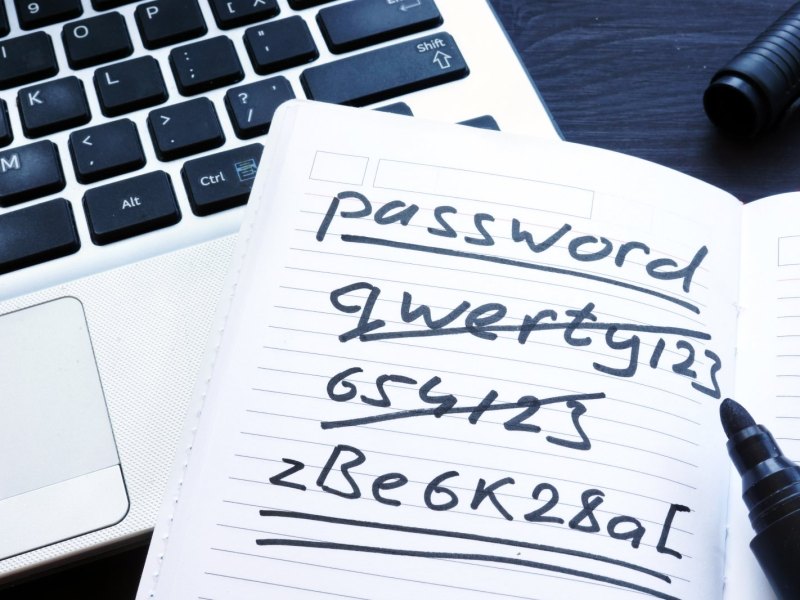 9
O
P
{ [
} ]
Enter
I
K
L
: ;
" '
Shift
M
< ,
> .
? /
Alt
Ctrl
password
qwerty123
654123
zBe6K28a[